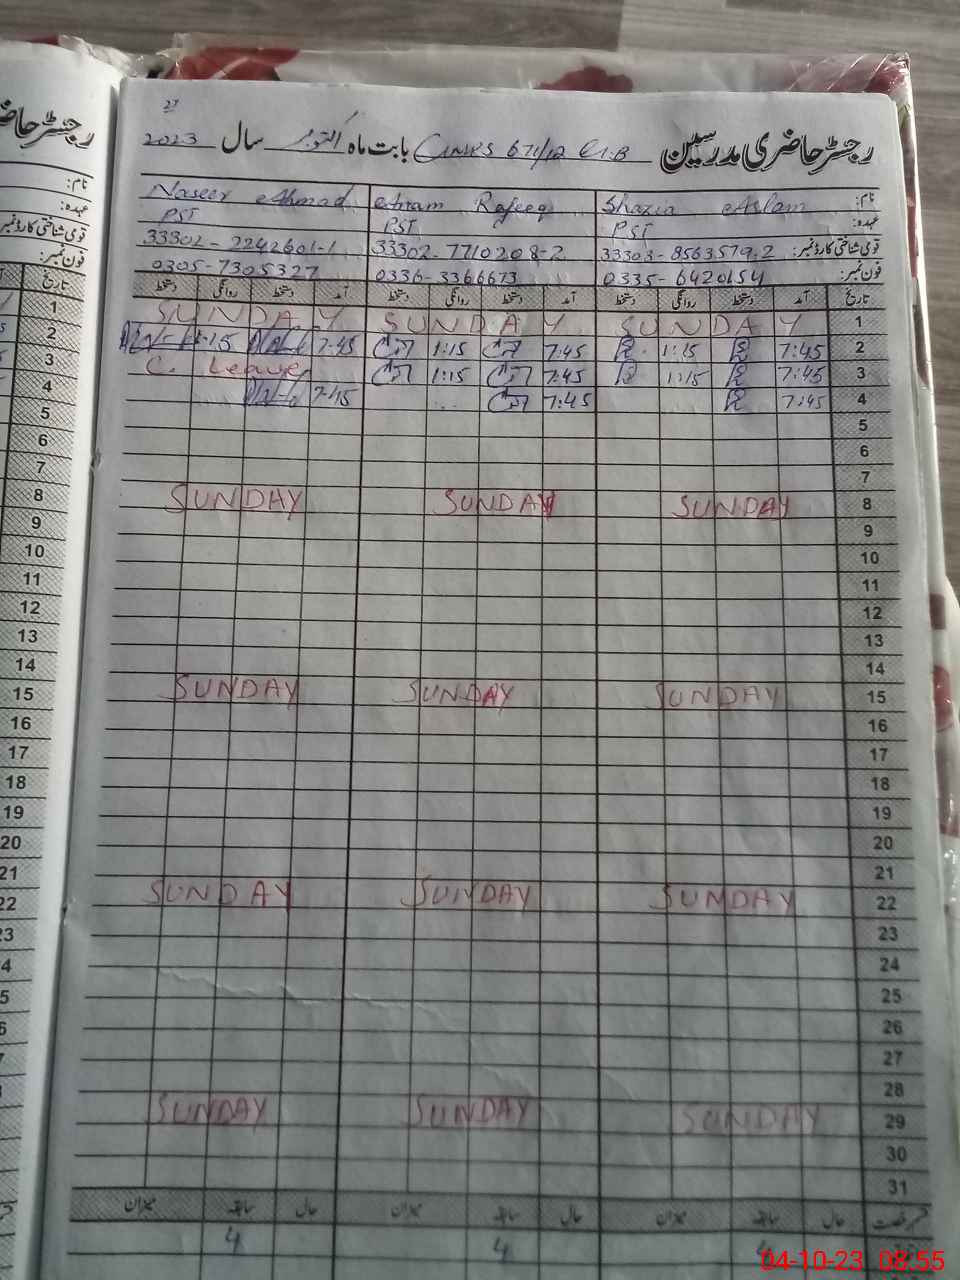 27
رجسٹر حاضری مدرسین GMPS 671/12 بابت ماہ اکتوبر سال 2023
نام: Shazia Aslam Anam Rafeeq Naseer Ahmad
عہدہ: PST PST PST
قومی شناختی کارڈ نمبر: 33303-8563579-2 33302-7710208-2 33302-2242601-1
فون نمبر: 0335-6420154 0336-3366673 0305-7305327
تاریخ آمد دستخط روانگی دستخط آمد دستخط روانگی دستخط آمد دستخط روانگی دستخط
1 SUNDAY SUNDAY SUNDAY
2 7:45 1:15 7:45 1:15 7:45 1:15
3 7:45 1:15 7:45 1:15 C. Leave
4 7:45 7:45 7:45
5
6
7
8 SUNDAY SUNDAY SUNDAY
9
10
11
12
13
14
15 SUNDAY SUNDAY SUNDAY
16
17
18
19
20
21
22 SUNDAY SUNDAY SUNDAY
23
24
25
26
27
28
29 SUNDAY SUNDAY SUNDAY
30
31
قسم رخصت حال سابقہ میزان حال سابقہ میزان حال سابقہ میزان
4 4 4
04-10-23 08:55
رجسٹر حاضری
نام:
عہدہ:
قومی شناختی کارڈ نمبر:
فون نمبر:
تاریخ
1
2
3
4
5
6
7
8
9
10
11
12
13
14
15
16
17
18
19
20
21
22
23